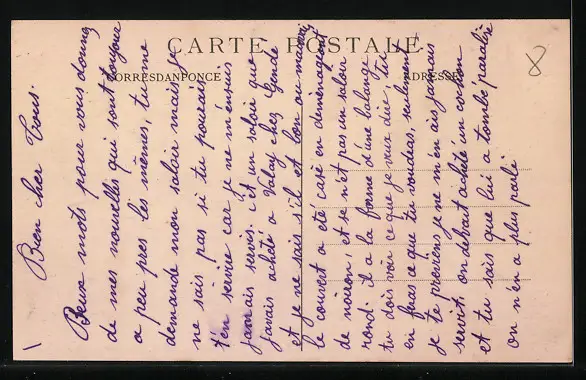 CARTE POSTALE
CORRESDANPONCE
ADRESSE
8
Bien cher Tous.
Deux mots pour vous donnez
de mes nouvelles qui sont toujour
a peu pres les mêmes, tu me
demande mon saloir mais je
ne sais pas si tu pourais
t'en servire car je ne m'ensuis
jamais servis. c'et un saloir que
javais acheté a Valay chez Gende
et je ne sais s'il et bon ou mauvai
le couvert a été casé en demenagent
de nouron, et se n'et pas un saloir
rond il a la forme d'une balance
tu dois voir ce que je veux dire, tu
en feras ce que tu voudras, seulement
je te previens je ne m'en ais jamais
servit, on devait acheté un cochon
et tu sais que lui a tombé paralisé
on n'en a plus parlé